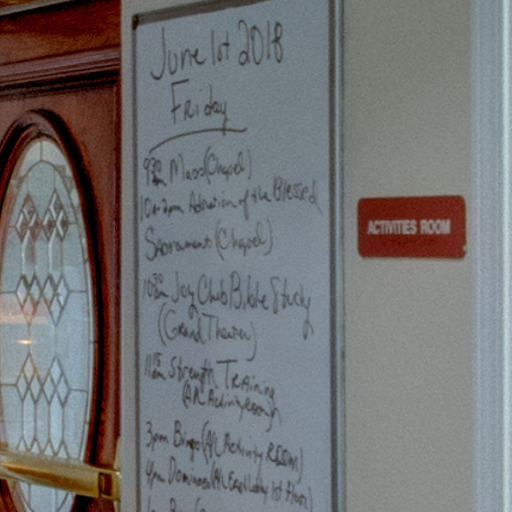 June 1st 2018
Friday
9:30am Mass (Chapel)
10am-2pm Adoration of the Blessed
Sacrament (Chapel)
10:30am Joy Club Bible Study
(Grand Theater)
11:15am Strength Training
(AL Activity Room)
3pm Bingo (AL Activity Room)
4pm Dominoes (AL East Lobby 1st floor)
ACTIVITIES ROOM